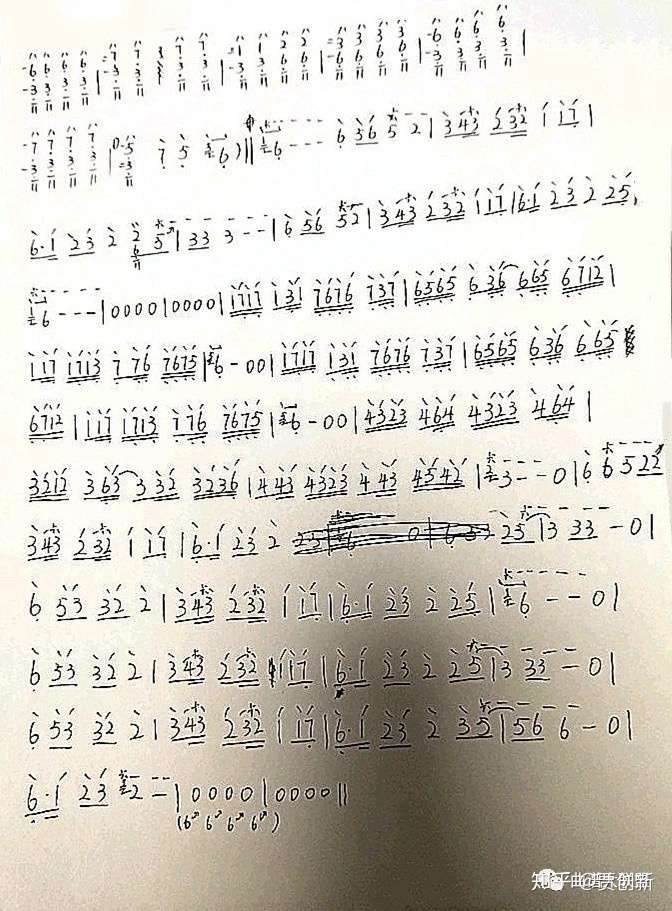 6 6 6 6 | 7 7 3 7 7 | 1 1 2 2 | 3 3 3 3 | 6 6 6 6 |
7 7 7 7 | 5 7 5 6 ) || 6 - - - 6 56 5 2 | 343 232 1 17 |
6·1 23 2 2 5 | 33 3 - - | 6 56 52 | 343 232 1 17 | 6·1 23 2 25 |
6 - - - | 0000 | 0000 | 1717 131 7676 737 | 6565 636 665 6712 |
117 1713 776 7675 | 6 - 00 | 1717 131 7676 737 | 6565 636 665
6712 | 117 1713 776 7675 | 6 - 00 | 4323 464 4323 464 |
3212 363 332 3236 | 443 4323 443 4542 | 3 - - 0 | 6 6 5 22
343 232 1 17 | 6·1 23 2 25 | 3 33 - 0 |
6 53 32 2 | 343 232 1 17 | 6·1 23 2 25 | 6 - - 0 |
6 53 32 2 | 343 232 1 17 | 6·1 23 2 25 | 3 33 - 0 |
6 53 32 2 | 343 232 1 17 | 6·1 23 2 35 | 56 6 - 0 |
6·1 23 2 - | 0000 | 0000 ||
(6 6 6 6)